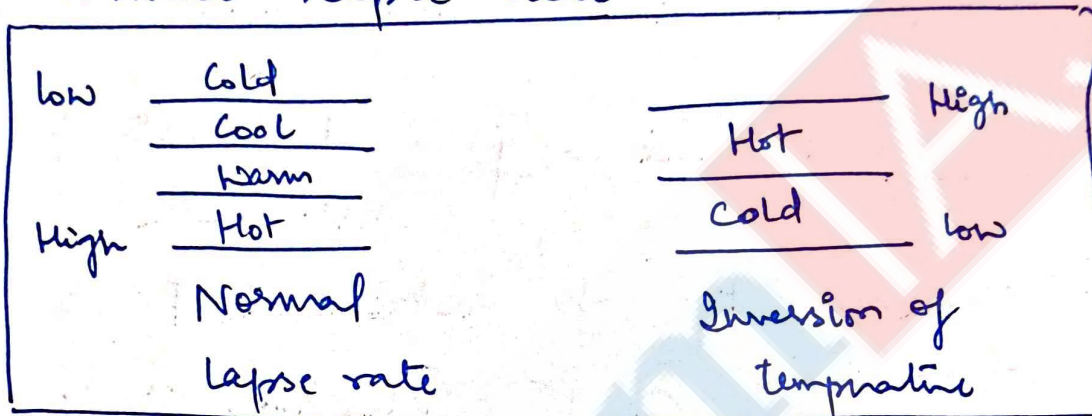 lapse rate
low Cold
Cool
Warm
High Hot
Normal
lapse rate
High
Hot
Cold
low
Inversion of
temperature